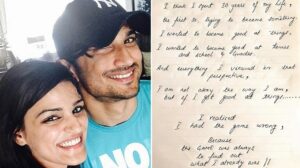 I think I spent 30 years of my life,
the first 30, trying to become something
I wanted to become good at things.
I wanted to become good at tennis
and school & Grades.
And everything I viewed in that
perspective,
I am not okay the way I am,
but if I get good at things.......
I realised
I had the game wrong,
Because
the Game was always
to find out
what I already was!!
NO